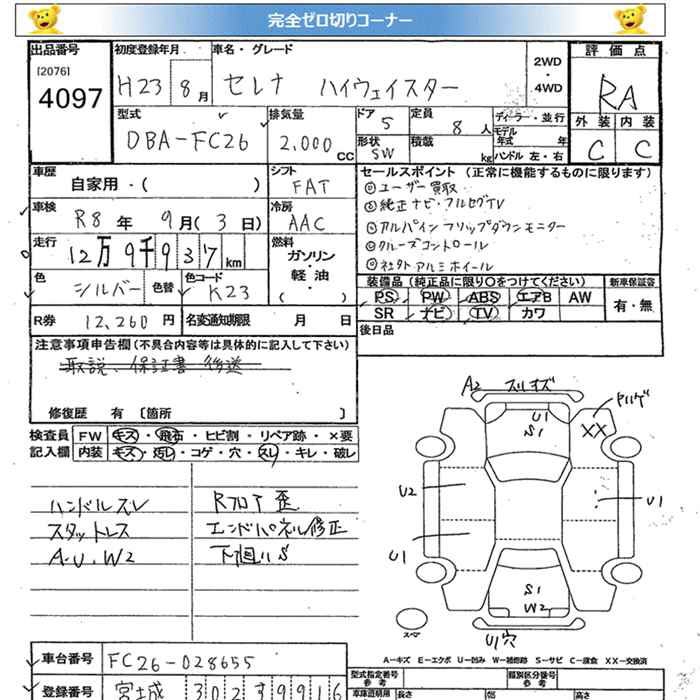 完全ゼロ切りコーナー
出品番号
[2076]
4097
初度登録年月
H23 8月
車名・グレード
セレナ ハイウェイスター
2WD
・
4WD
評価点
RA
型式
DBA-FC26
排気量
2,000cc
ドア
5
定員
8人
形状
SW
積載
kg
ディーラー・並行
モデル年式 年
ハンドル 左・右
外装 内装
C C
車歴
自家用・( )
シフト
FAT
車検
R8年 9月(3日)
冷房
AAC
走行
12万9千937km
燃料
ガソリン
・
軽・油
( )
色
シルバー
色替
色コード
K23
R券 12,260円
名変通知期限 月 日
セールスポイント (正常に機能するものに限ります)
◎ユーザー買取
◎純正ナビ・フルセグTV
◎アルパインフリップダウンモニター
◎クルーズコントロール
◎社外アルミホイール
装備品(純正品に限り○をつけてください)
新車保証書
PS PW ABS エアB AW
SR ナビ TV カワ
有・無
後日品
注意事項申告欄(不具合内容等は具体的に記入して下さい)
取説、保証書 後送
修復歴 有 〔箇所 〕
検査員記入欄
FW キズ・飛石・ヒビ割・リペア跡・×要
内装 キズ・汚レ・コゲ・穴・スレ・キレ・破レ
ハンドルスレ
スタットレス
A・U・W2
Rフロア歪
エンドパネル修正
下廻りS
A2 スリキズ
U1
S1
XX
U2
U1
U1
S1
W2
U1穴
スペア
A-キズ E-エクボ U-凹み W-補修跡 S-サビ C-腐食 XX-交換済
車台番号 FC26-028655
登録番号 宮城 302 す 9916
型式指定番号
参考
類別区分番号
参考
車庫証明用
長さ
幅
高さ